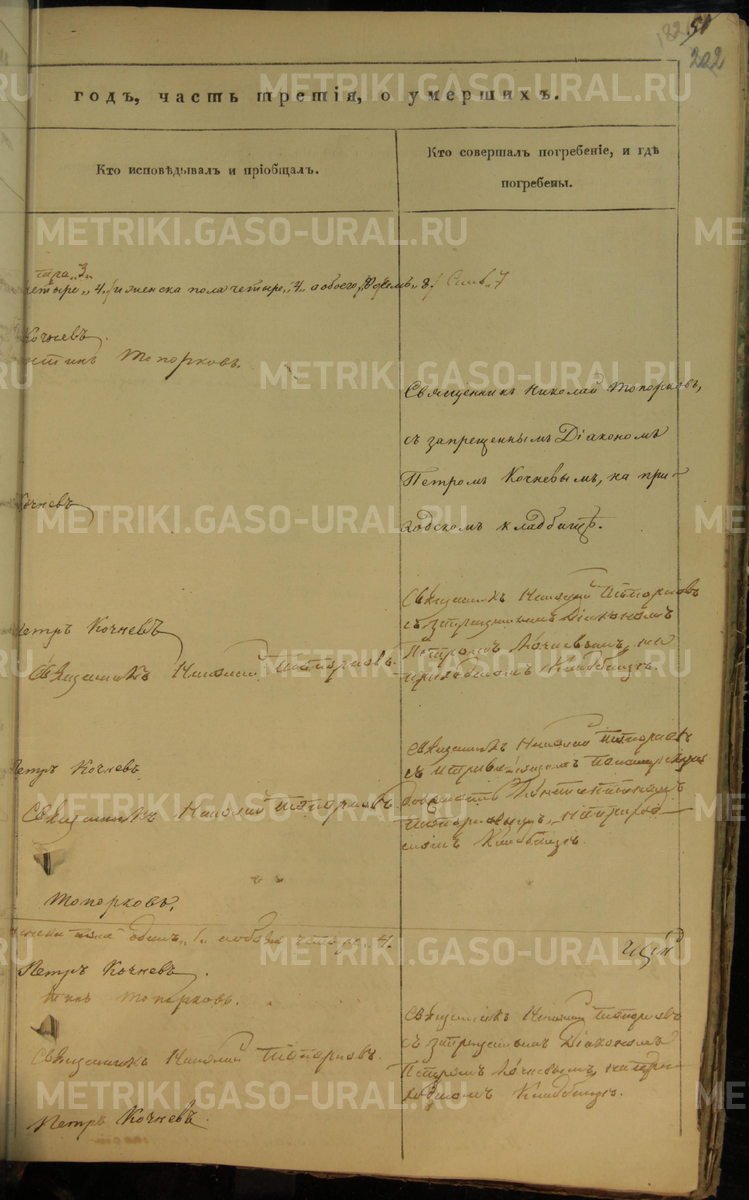 51
202
годъ, часть третія, о умершихъ.
Кто исповѣдывалъ и пріобщалъ.
Кто совершалъ погребеніе, и гдѣ
погребены.
METRIKI.GASO-URAL.RU
четыре „4„ и женска пола четыре „4„ а обоего „8.
Кочневъ.
Топорковъ.
Священникъ Николай Топорковъ,
съ запрещеннымъ Діакономъ
Петромъ Кочневымъ, на при-
ходскомъ кладбищѣ.
Кочневъ
Петръ Кочневъ
Священникъ Николай Топорковъ.
Священникъ Николай Топорковъ
съ запрещеннымъ Діакономъ
Петромъ Кочневымъ, на
приходскомъ Кладбищѣ.
Петръ Кочневъ
Священникъ Николай Топорковъ
Священникъ Николай Топорковъ
Топорковымъ, на приход
скомъ Кладбищѣ.
Топорковъ.
женска пола одинъ „1„ а обоего четыре „4.
Петръ Кочневъ.
Топорковъ.
Священникъ Николай Топорковъ.
Петръ Кочневъ.
Священникъ Николай Топорковъ
съ запрещеннымъ Діакономъ
Петромъ Кочневымъ, на при-
ходскомъ Кладбищѣ.